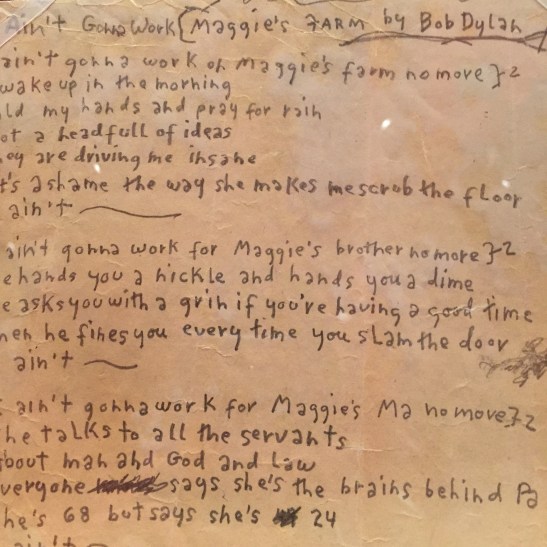 Ain't Gonna Work {Maggie's FARM by Bob Dylan
ain't gonna work on Maggie's farm no more }-2
wake up in the morning
ld my hands and pray for rain
ot a head full of ideas
ey are driving me insane
t's a shame the way she makes me scrub the floor
ain't
ain't gonna work for Maggie's brother no more }-2
e hands you a nickle and hands you a dime
e asks you with a grin if you're having a good time
hen he fines you every time you slam the door
ain't
ain't gonna work for Maggie's Ma no more }-2
he talks to all the servants
about man and God and Law
veryone says she's the brains behind Pa
he's 68 but says she's 24
ain't